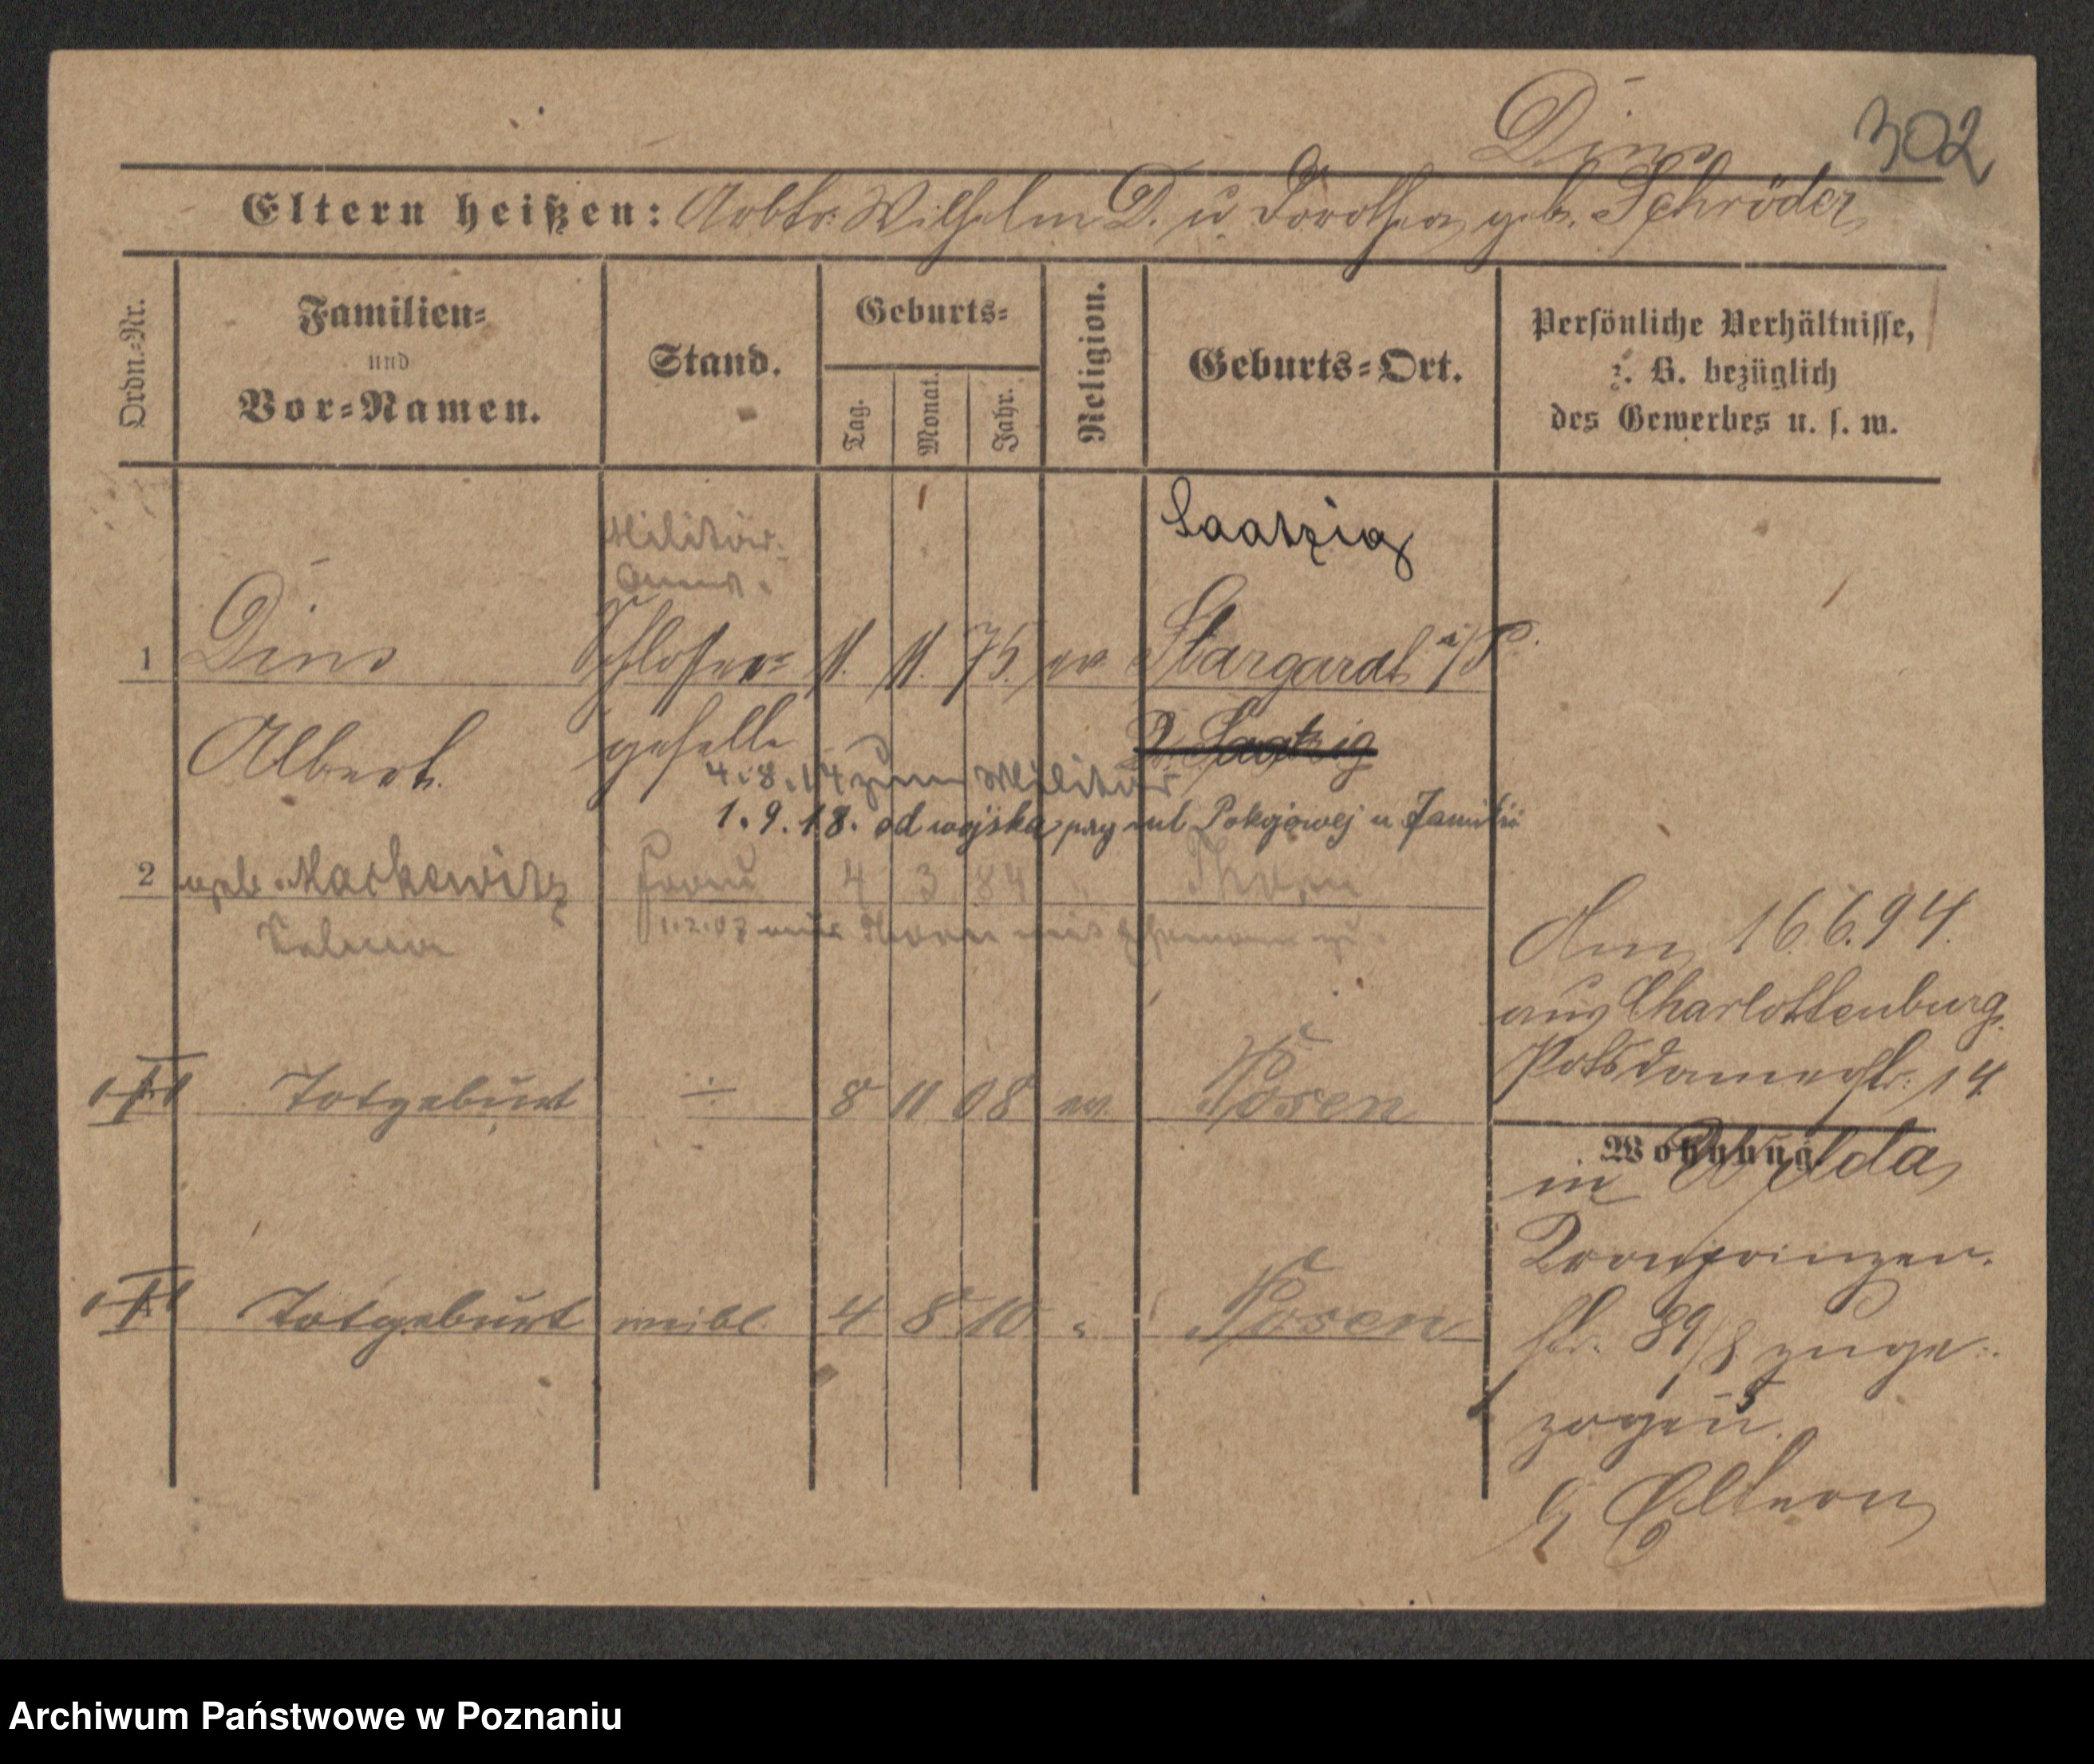 302
Eltern heißen: Arbtr. Wilhelm D. u. Dorothea geb. Schröder
Ordn.=Nr.
Familien=
und
Vor=Namen.
Stand.
Geburts=
Tag.
Monat.
Jahr.
Religion.
Geburts=Ort.
Persönliche Verhältnisse,
z. B. bezüglich
des Gewerbes u. s. w.
Militär-
Saatzig
1 Dins Schlosser= 11. 11. 75. ev Stargardt i/P.
Albert. geselle Saatzig
4.8.14 zum Militär
1.9.18. od wojska przy ul Pokojowej u Familii
2 geb. Mackewitz Frau 4 3 84 " Thorn
1.2.07 aus Thorn mit Ehemann zu
Totgeburt ÷ 8 11 08 ev. Posen
Totgeburt weibl. 4 8 10 " Posen
Am 16.6.94.
aus Charlottenburg
Potsdamerstr. 14
Wohnung
in Wilda
Kronprinzen-
str. 89/8 zuge-
zogen.
Eltern
Archiwum Państwowe w Poznaniu